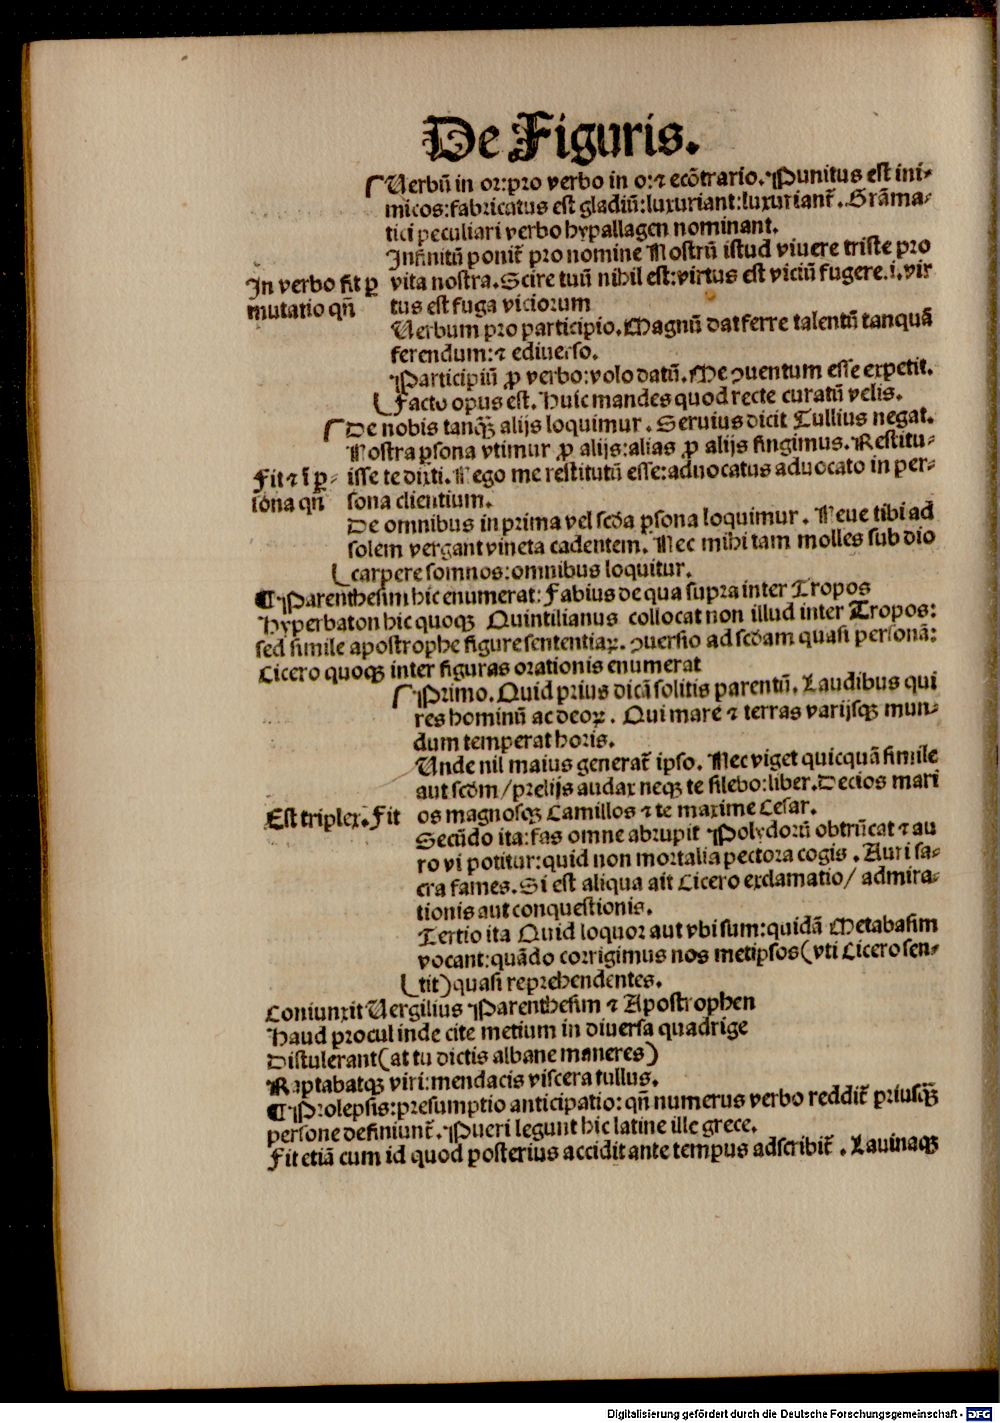 De Figuris.
Verbū in or:pro verbo in o:⁊ ecōtrario. Punitus est ini-
micos:fabricatus est gladiū:luxuriant:luxuriant᷑. Grāma-
tici peculiari verbo hypallagen nominant.
Infinitū ponit᷑ pro nomine Nostrū istud viuere triste pro
In verbo fit ꝑ
vita nostra. Scire tuū nihil est:virtus est viciū fugere.i.vir
mutatio qn̄
tus est fuga viciorum
Verbum pro participio. Magnū dat ferre talentū tanquā
ferendum:⁊ ediuerso.
Participiū ꝓ verbo:volo datū. Me ꝯuentum esse expetit.
Facto opus est. Huic mandes quod recte curatū velis.
De nobis tanq̄ȝ alijs loquimur. Seruius dicit Tullius negat.
Nostra ꝑsona vtimur ꝓ alijs:alias ꝓ alijs fingimus. Restitu-
Fit ⁊ ī ꝑ-
isse te dixti. Nego me restitutū esse:aduocatus aduocato in per-
sona qn̄
sona clientium.
De omnibus in prima vel scd̄a ꝑsona loquimur. Neue tibi ad
solem vergant vineta cadentem. Nec mihi tam molles sub dio
carpere somnos:omnibus loquitur.
¶ Parenthesim hic enumerat:Fabius de qua supra inter Tropos
Hyperbaton hic quoqȝ Quintilianus collocat non illud inter Tropos:
sed simile apostrophe figure sententiaꝝ. ꝯuersio ad scd̄am quasi personā:
Cicero quoqȝ inter figuras orationis enumerat
Primo. Quid prius dicā solitis parentū. Laudibus qui
res hominū ac deoꝝ. Qui mare ⁊ terras varijsqȝ mun-
dum temperat horis.
Unde nil maius generat᷑ ipso. Nec viget quicquā simile
aut scd̄m/prelijs audax neqȝ te silebo:liber. Decios mari
Est triplex. Fit
os magnosqȝ Camillos ⁊ te maxime Cesar.
Secūdo ita:fas omne abrupit Polydorū obtrūcat ⁊ au
ro vi potitur:quid non mortalia pectora cogis. Auri sa-
cra fames. Si est aliqua ait Cicero exclamatio/ admira-
tionis aut conquestionis.
Tertio ita Quid loquor aut vbi sum:quidā Metabasim
vocant:quādo corrigimus nos metipsos(vti Cicero sen-
tit)quasi reprehendentes.
Coniunxit Vergilius Parenthesim ⁊ Apostrophen
Haud procul inde cite metium in diuersa quadrige
Distulerant(at tu dictis albane maneres)
Raptabatqȝ viri:mendacis viscera tullus.
¶ Prolepsis:presumptio anticipatio:qn̄ numerus verbo reddit᷑ priusq̄ȝ
persone definiunt᷑. Pueri legunt hic latine ille grece.
Fit etiā cum id quod posterius accidit ante tempus adscribit᷑. Lauinaqȝ
Digitalisierung gefördert durch die Deutsche Forschungsgemeinschaft - DFG